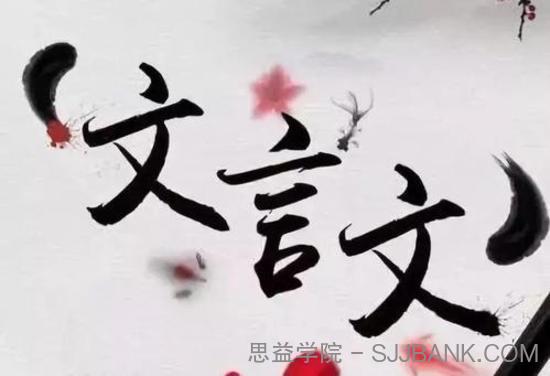 文言文
思益学院 - SJJBANK.COM